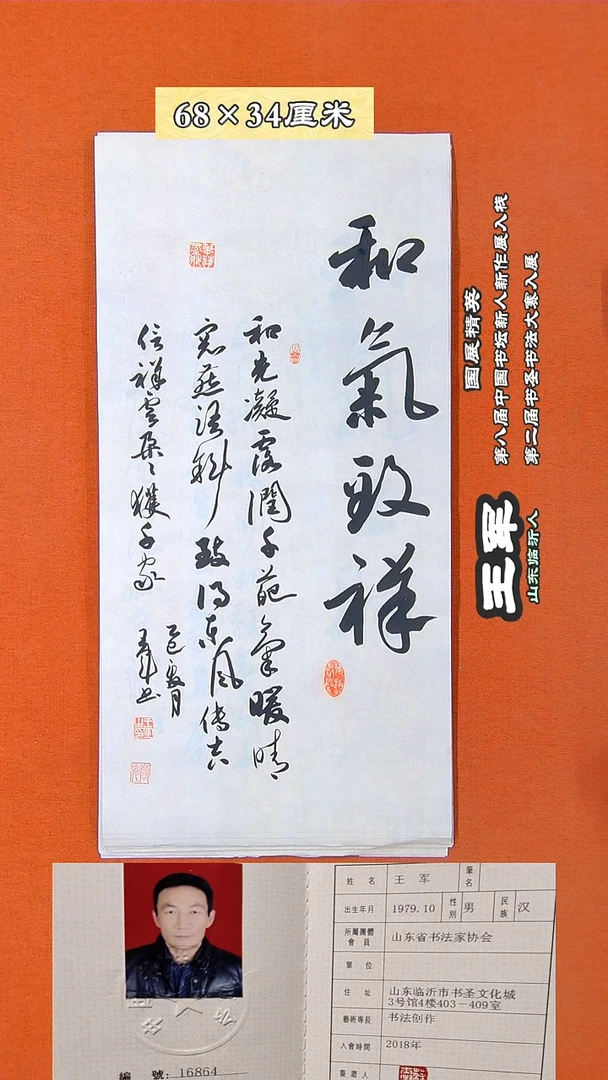 68×34厘米
和氣致祥
和光凝露潤千葩氣暖晴
窓燕語斜致得東风傳吉
信祥雲朵々千家
乙巳夏月
王军书
国展精英
第八届中国书坛新人新作展入展
第二届书圣书法大赛入展
王军
山东临沂人
編 號：16864
姓 名 王 军 筆名
出生年月 1979.10 性別 男 民族 汉
所屬團體會員 山东省书法家协会
單 位
住 址 山东临沂市书圣文化城
3号馆4楼403－409室
藝術專長 书法创作
入會時間 2018年
簽證人